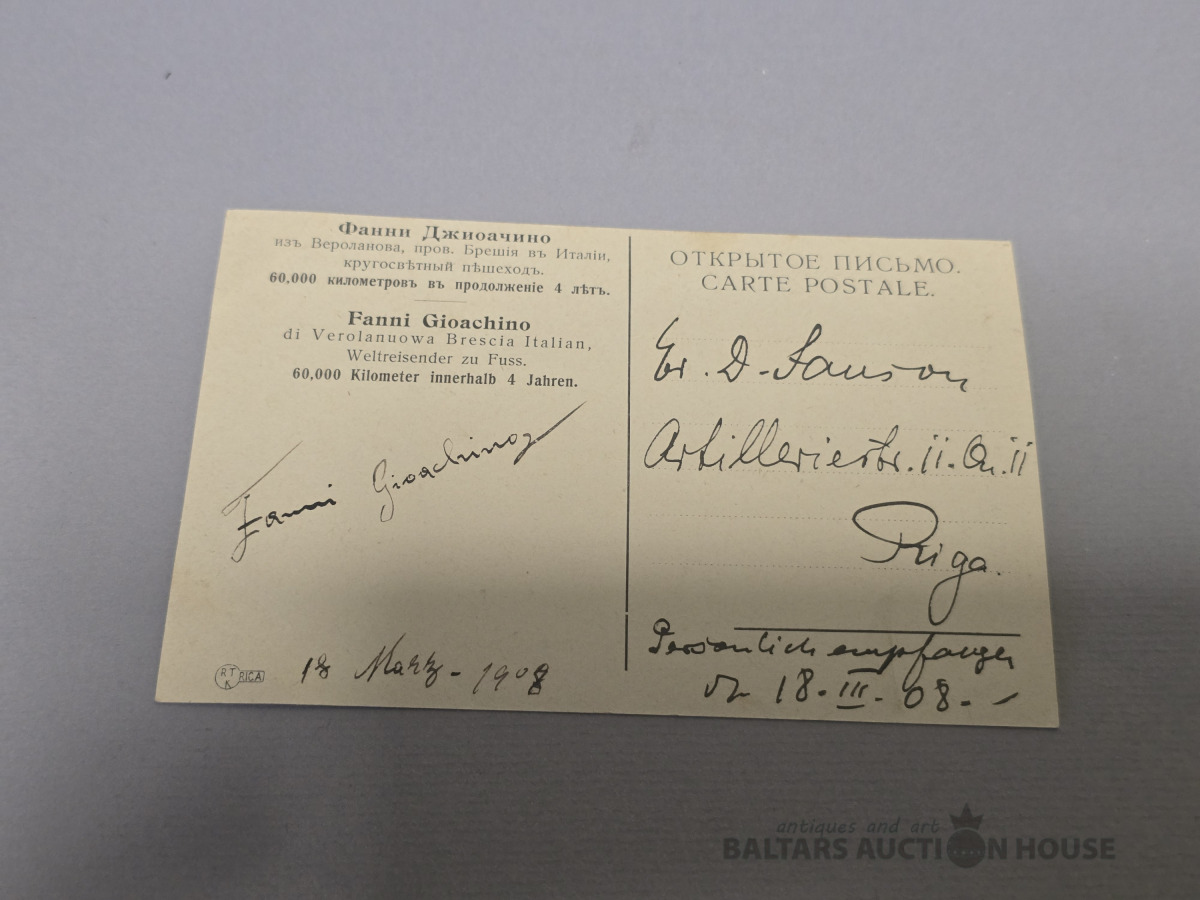 Фанни Джиоачино
изъ Вероланова, пров. Брешія въ Италіи,
кругосвѣтный пѣшеходъ.
60,000 километровъ въ продолженіе 4 лѣтъ.
Fanni Gioachino
di Verolanuowa Brescia Italian,
Weltreisender zu Fuss.
60,000 Kilometer innerhalb 4 Jahren.
Fanni Gioachino
18 Marz - 1908
R T K RIGA
ОТКРЫТОЕ ПИСЬМО.
CARTE POSTALE.
D. Sanson
Artilleriestr. ii. Qu. ii
Riga.
Persönlich empfangen
18. III. 08. -
antiques and art
BALTARS AUCTION HOUSE